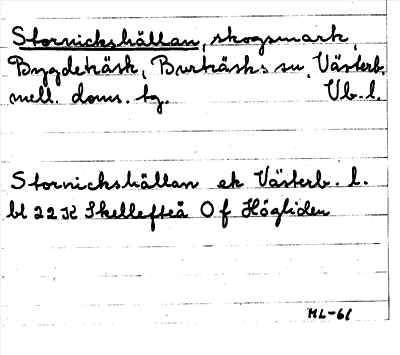 Stornickshällan, skogsmark,
Bygdeträsk, Burträsks sn, Västerb.
mell. doms. tg. Vb. l.
Stornickshällan ek Västerb. l.
bl 22K Skellefteå 0 f Högliden
ML-61